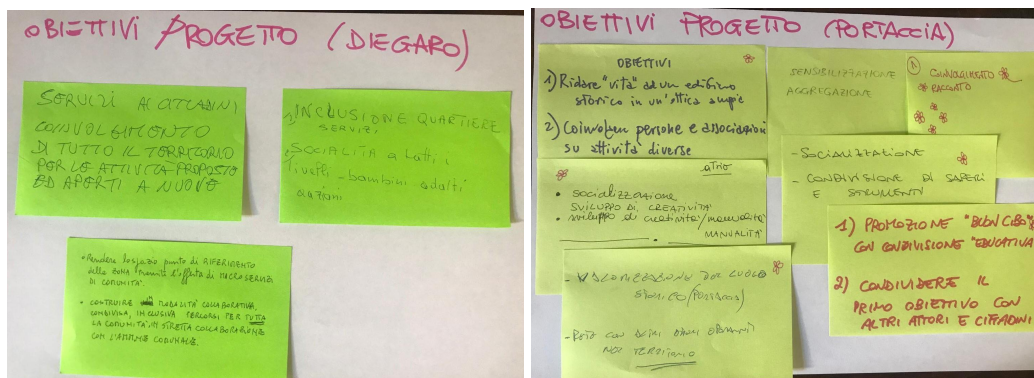 OBIETTIVI PROGETTO (DIEGARO)
SERVIZI AI CITTADINI
COINVOLGIMENTO
DI TUTTO IL TERRITORIO
PER LE ATTIVITÀ PROPOSTE
ED APERTI A NUOVE
INCLUSIONE QUARTIERE
SERVIZI
SOCIALITÀ a tutti i
livelli - bambini adulti
anziani
• Rendere lo spazio punto di RIFERIMENTO
della ZONA tramite l'offerta di MICRO SERVIZI
DI COMUNITÀ.
• COSTRUIRE MODALITÀ COLLABORATIVA,
CONDIVISA, INCLUSIVA PERCORSI PER TUTTA
LA COMUNITÀ IN STRETTA COLLABORAZIONE
CON L'AMM.NE COMUNALE.
OBIETTIVI PROGETTO (PORTACCIA)
OBIETTIVI
1) Ridare "vita" ad un edificio
storico in un'ottica ampia
2) Coinvolgere persone e associazioni
su attività diverse
SENSIBILIZZAZIONE
AGGREGAZIONE
COINVOLGIMENTO
RACCONTO
• SOCIALIZZAZIONE
SVILUPPO DI CREATIVITÀ
• sviluppo di creatività/manualità
MANUALITÀ
- SOCIALIZZAZIONE
- CONDIVISIONE DI SAPERI
E STRUMENTI
- VALORIZZAZIONE DEL LUOGO
STORICO (PORTACCIA)
- RETE CON ALTRI
NEL TERRITORIO
1) PROMOZIONE "BUON CIBO"
CON CONDIVISIONE "EDUCATIVA"
2) CONDIVIDERE IL
PRIMO OBIETTIVO CON
ALTRI ATTORI E CITTADINI